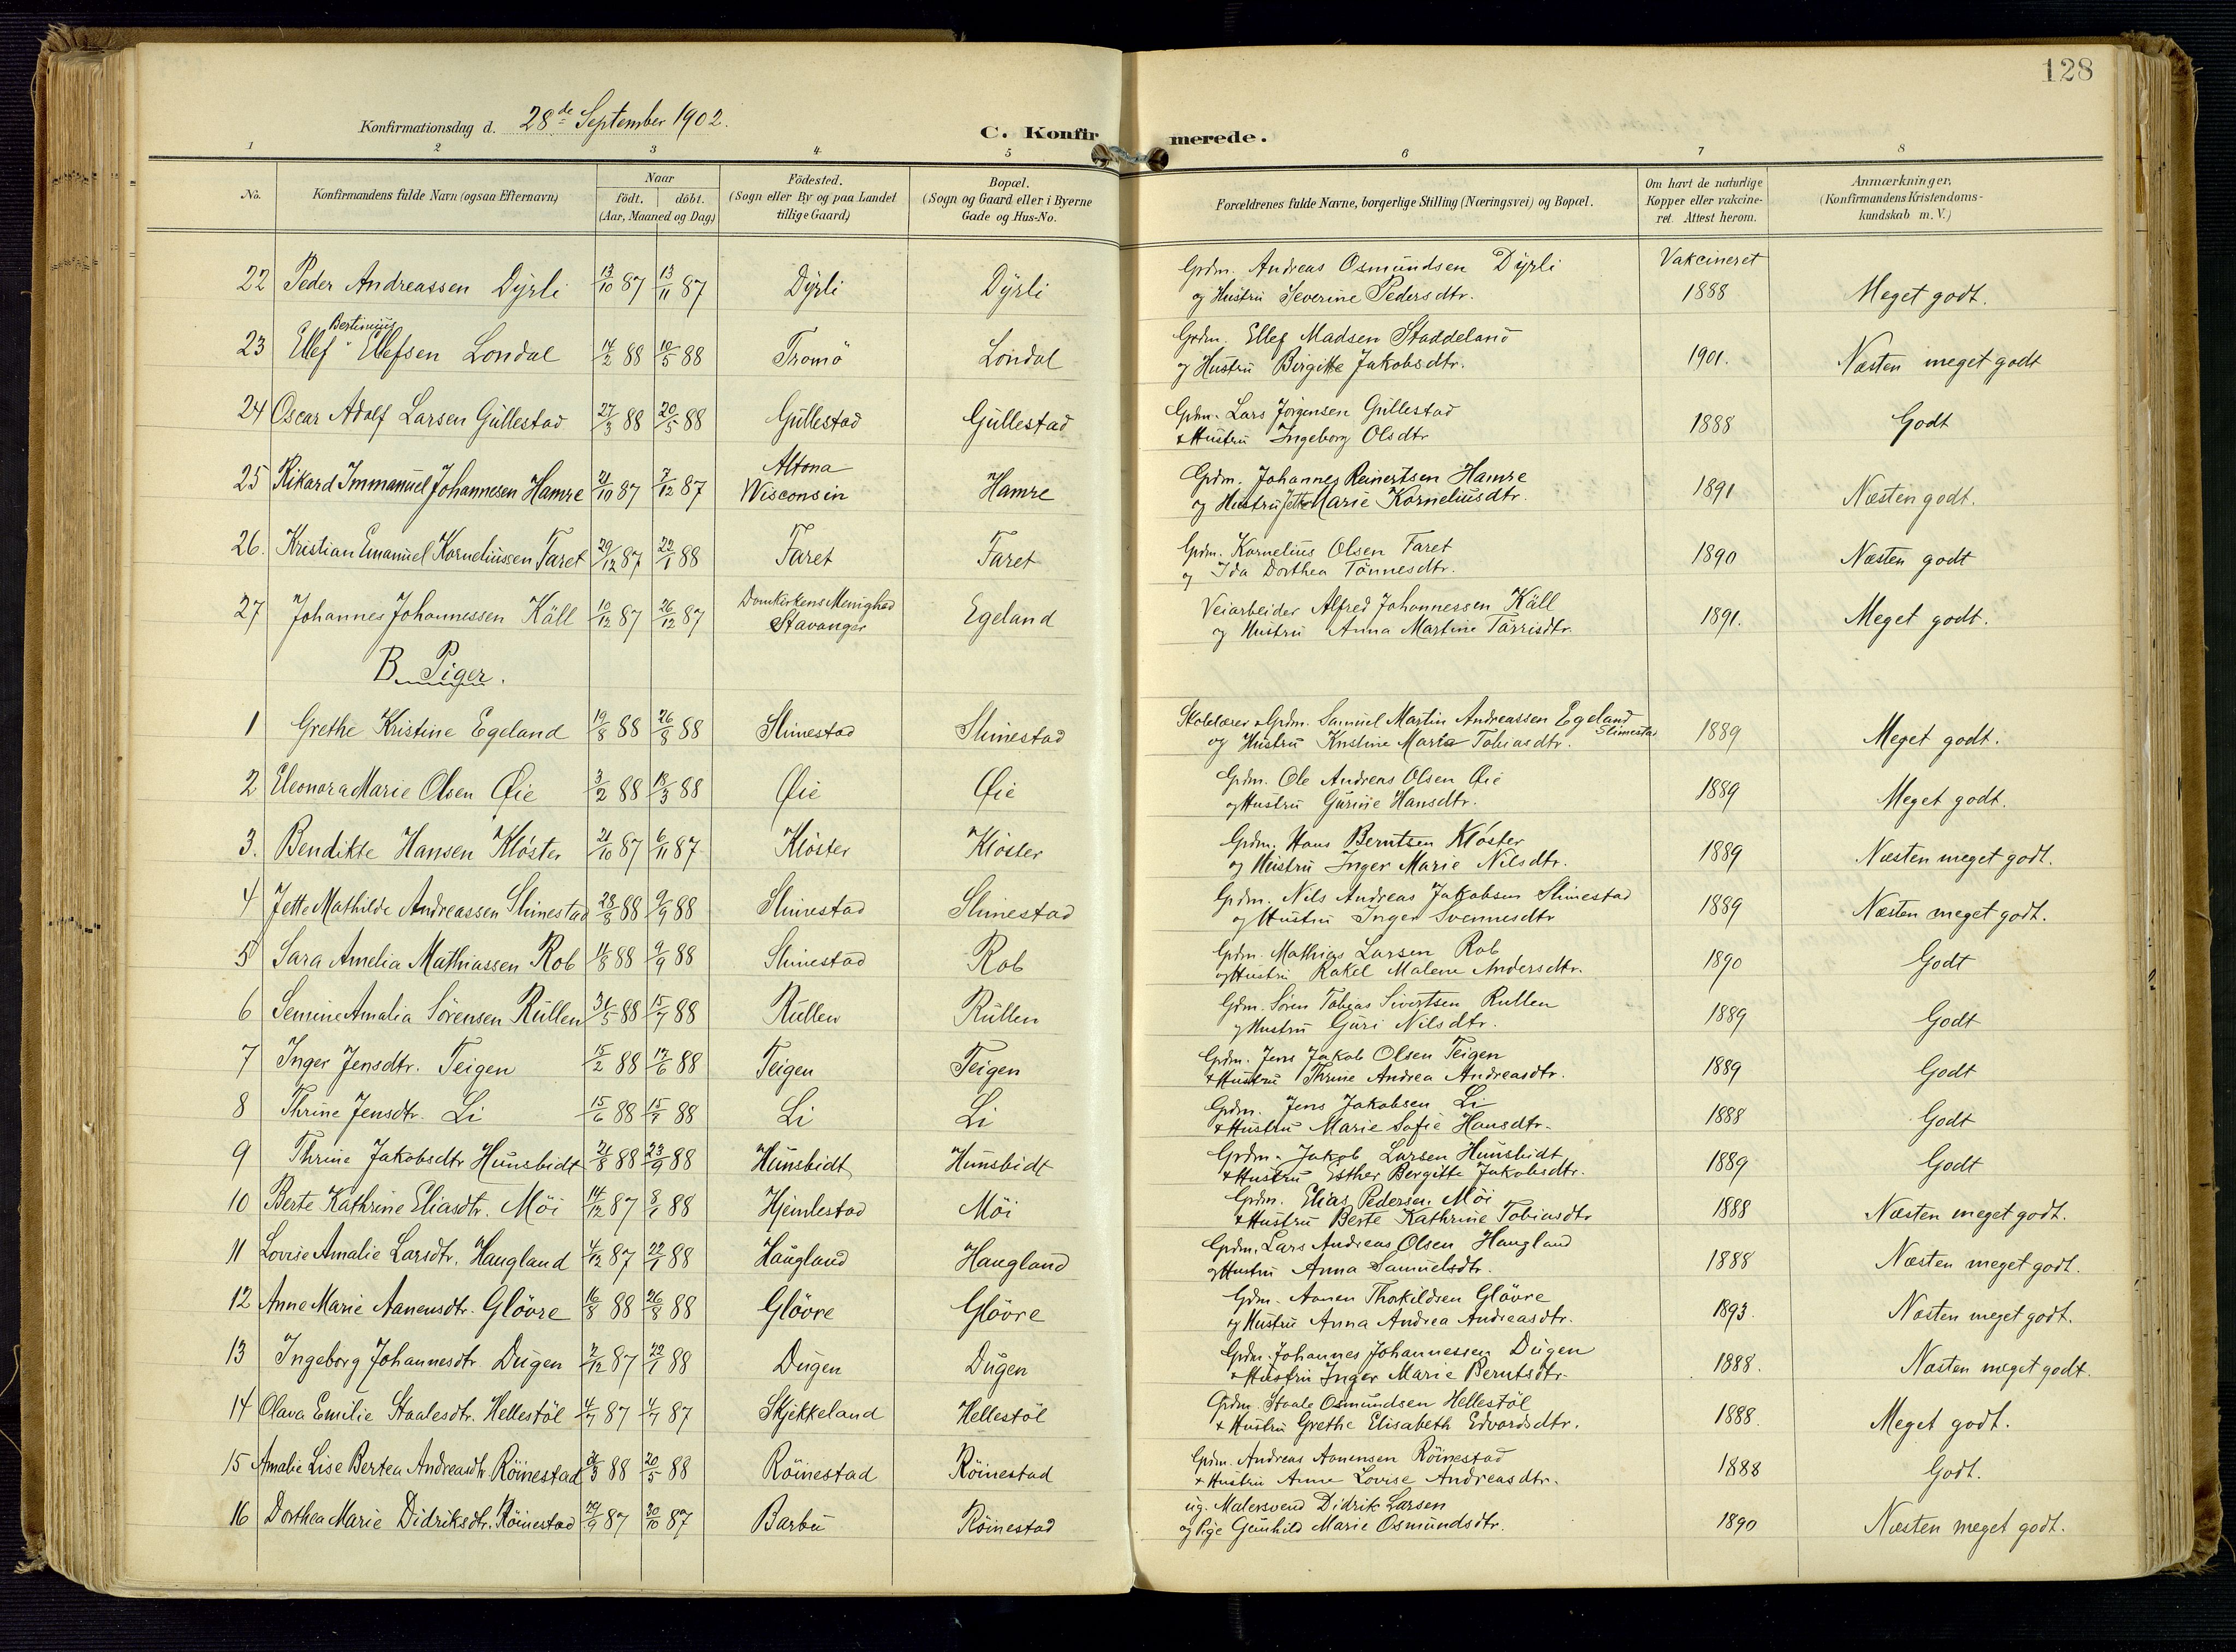 128
Konfirmationsdag d. 28de September 1902.
C. Konfirmerede.
1 2 3 4 5 6 7 8
No. Konfirmandens fulde Navn (ogsaa Efternavn) Naar födt. döbt. (Aar, Maaned og Dag) Födested. (Sogn eller By og paa Landet tillige Gaard) Bopæl. (Sogn og Gaard eller i Byerne Gade og Hus-No. Forældrenes fulde Navne, borgerlige Stilling (Næringsvei) og Bopæl. Om havt de naturlige Kopper eller vakcineret. Attest herom. Anmærkninger, (Konfirmandens Kristendomskundskab m. V.)
22 Peder Andreassen Dyrli 13/10 87 13/11 87 Dyrli Dyrli Grdm. Andreas Osmundsen Dyrli og Hustru Severine Pedersdtr. Vakcineret 1888 Meget godt.
23 Ellef Bertinius Ellefsen Londal 14/2 88 10/5 88 Tromö Londal Grdm. Ellef Madsen Staddeland og Hustru Birgitte Jakobsdtr. 1901. Næsten meget godt
24 Oscar Adolf Larsen Gullestad 27/3 88 20/5 88 Gullestad Gullestad Grdm. Lars Jörgensen Gullestad & Hustru Ingeborg Olsdtr 1888 Godt
25 Rikard Immanuel Johannesen Hamre 21/10 87 7/12 87 Altona Wisconsin Hamre Grdm. Johannes Reinertsen Hamre og Hustru Jette Marie Korneliusdtr. 1891 Næsten godt.
26. Kristian Emanuel Korneliussen Faret 29/12 87 22/1 88 Faret Faret Grdm. Kornelius Olsen Faret og Ida Dorthea Tönnesdtr. 1890 Næsten godt
27 Johannes Johannessen Käll 10/12 87 26/12 87 Domkirkens Menighed Stavanger Egeland Veiarbeider Alfred Johannessen Käll og Hustru Anna Martine Tarrisdtr. 1891. Meget godt.
B. Piger.
1 Grethe Kristine Egeland 19/8 88 26/8 88 Slimestad Slimestad Skolelærer & Grdm. Samuel Martin Andreassen Egeland Slimestad og Hustru Kristine Marta Tobiasdtr. 1889 Meget godt.
2 Eleonora Marie Olsen Øie 3/2 88 18/3 88 Øie Øie Grdm. Ole Andreas Olsen Øie og Hustru Gurine Hansdtr. 1889 Meget godt.
3. Bendikte Hansen Klöster 21/10 87 6/11 87 Klöster Klöster Grdm. Hans Berntsen Klöster og Hustru Inger Marie Nilsdtr. 1889 Næsten meget godt.
4 Jette Mathilde Andreassen Slimestad 28/8 88 9/9 88 Slimestad Slimestad Grdm. Nils Andreas Jakobsen Slimestad og Hustru Inger Svennesdtr 1889 Næsten meget godt.
5 Sara Amelia Mathiassen Rob 11/8 88 9/9 88 Slimestad Rob Grdm. Mathias Larsen Rob og Hustru Rakel Malene Andersdtr. 1890 Godt
6 Semine Amalia Sörensen Rullen 31/5 88 15/7 88 Rullen Rullen Grdm. Sören Tobias Sivertsen Rullen og Hustru Guri Nilsdtr. 1889 Godt
7 Inger Jensdtr. Teigen 15/2 88 17/6 88 Teigen Teigen Grdm. Jens Jakob Olsen Teigen & Hustru Thrine Andrea Andreasdtr. 1889 Godt
8 Thrine Jensdtr. Li 15/6 88 15/7 88 Li Li Grdm. Jens Jakobsen Li & Hustru Marie Sofie Hansdtr. 1888 Godt
9 Thrine Jakobsdtr Hunsbidt 21/8 88 23/9 88 Hunsbidt Hunsbidt Grdm. Jakob Larsen Hunsbidt & Hustru Esther Bergitte Jakobsdtr. 1889 Godt
10 Berte Kathrine Eliasdtr. Möi 14/12 87 8/1 88 Hjemlestad Möi Grdm. Elias Pedersen Möi & Hustru Berte Kathrine Tobiasdtr 1888 Næsten meget godt.
11 Lovise Amalie Larsdtr. Haugland 4/12 87 22/1 88 Haugland Haugland Grdm. Lars Andreas Olsen Haugland og Hustru Anna Samuelsdtr. 1888 Næsten meget godt.
12 Anne Marie Aanensdtr. Glövre 16/8 88 26/8 88 Glövre Glövre Grdm. Aanen Thorkildsen Glövre og Hustru Anna Andrea Andreasdtr. 1893. Næsten meget godt.
13 Ingeborg Johannesdtr. Dugen 7/12 87 22/1 88 Dugen Dugen Grdm. Johannes Johannessen Dugen & Hustru Inger Marie Berntsdtr. 1888. Næsten meget godt.
14 Olava Emilie Staalesdtr. Hellestöl 4/7 87 4/7 87 Skjekkeland Hellestöl Grdm. Staale Osmundsen Hellestöl & Hustru Grethe Elisabeth Edvardsdtr. 1888. Meget godt.
15 Amalie Lise Bertea Andreasdtr. Röinestad 21/3 88 20/5 88 Röinestad Röinestad Grdm. Andreas Aanensen Röinestad & Hustru Anne Lovise Andreasdtr. 1888 Godt.
16 Dorthea Marie Didriksdtr. Röinestad 29/9 87 30/10 87 Barbu Röinestad ug. Malersvend Didrik Larsen og Pige Gunhild Marie Osmundsdtr. 1890 Næsten meget godt.